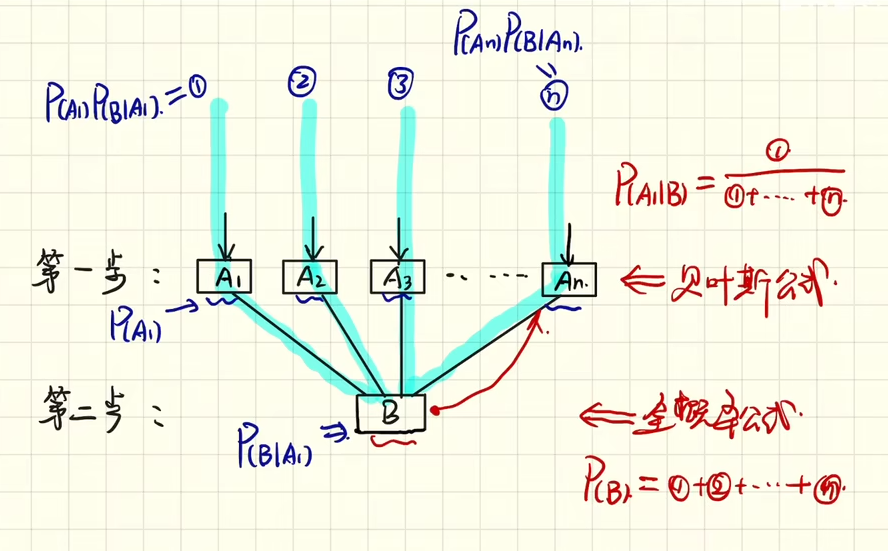 P(An)P(B|An).
P(A1)P(B|A1). = ① ② ③ ⓝ
P(A1|B) = ①/(①+……+ⓝ)
第一步： A1 A2 A3 ······ An. ⇐ 贝叶斯公式.
P(A1) →
第二步： B ⇐ 全概率公式.
P(B|A1) ⇒
P(B). = ①+②+……+ⓝ.